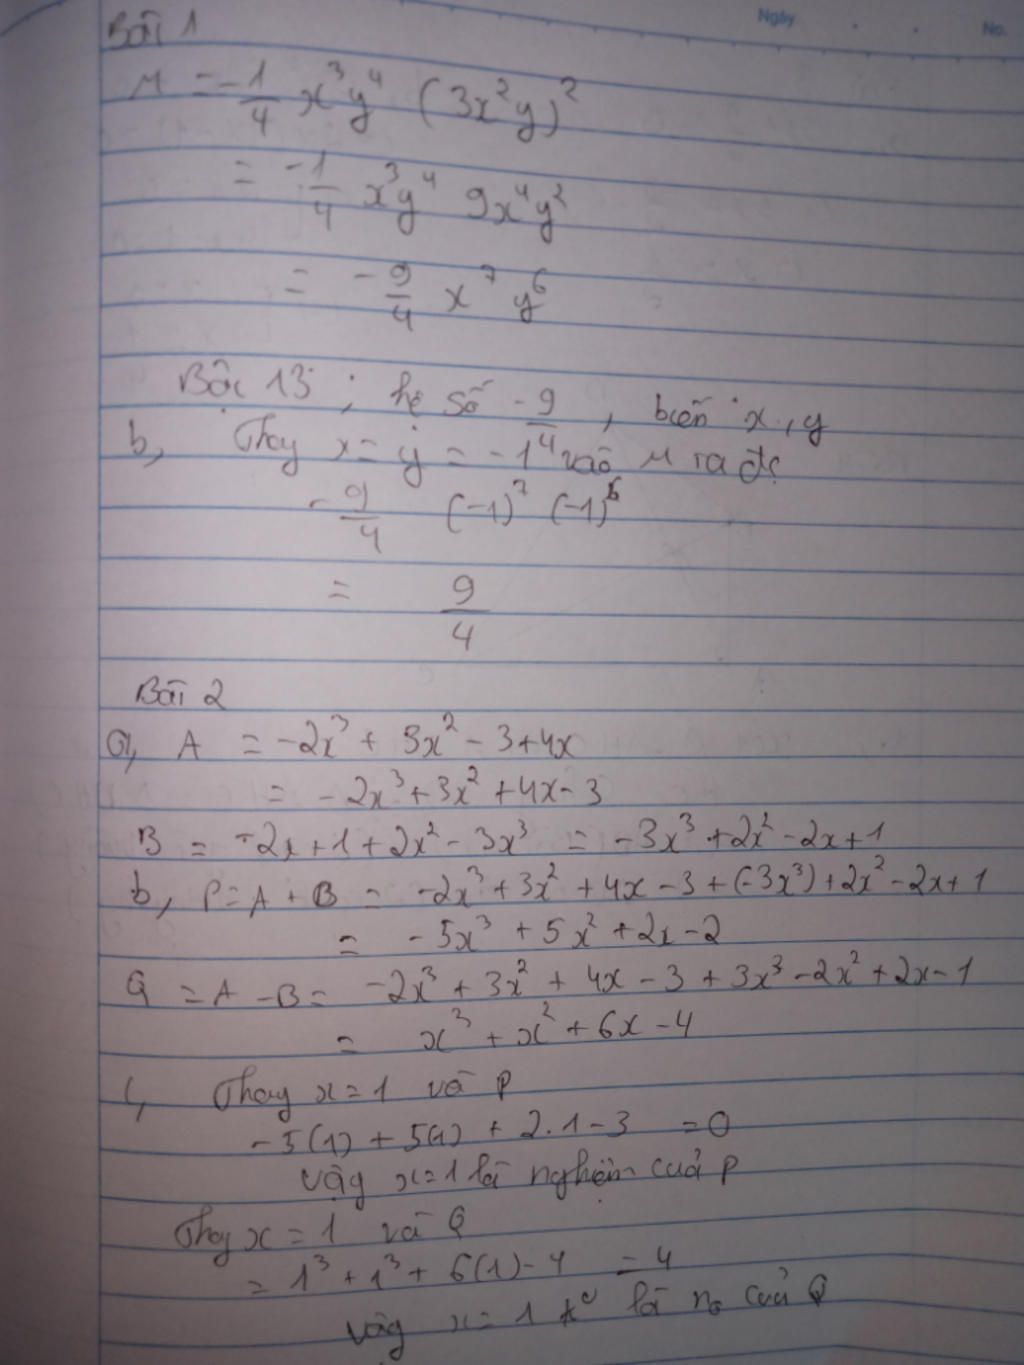 Ngày No.
Bài 1
M = -1/4 x³y⁴ (3x²y)²
= -1/4 x³y⁴ 9x⁴y²
= -9/4 x⁷ y⁶
Bậc 13 ; hệ số -9/4 , biến x, y
b, Thay x = y = -1 vào M ra đc
-9/4 (-1)⁷ (-1)⁶
= 9/4
Bài 2
a, A = -2x³ + 3x² - 3 + 4x
= -2x³ + 3x² + 4x - 3
B = -2x + 1 + 2x² - 3x³ = -3x³ + 2x² - 2x + 1
b, P = A + B = -2x³ + 3x² + 4x - 3 + (-3x³) + 2x² - 2x + 1
= -5x³ + 5x² + 2x - 2
Q = A - B = -2x³ + 3x² + 4x - 3 + 3x³ - 2x² + 2x - 1
= x³ + x² + 6x - 4
c, Thay x = 1 và P
-5(1) + 5(1) + 2.1 - 3 = 0
vậy x = 1 là nghiệm của P
Thay x = 1 và Q
= 1³ + 1³ + 6(1) - 4 = 4
vậy x = 1 là no của Q